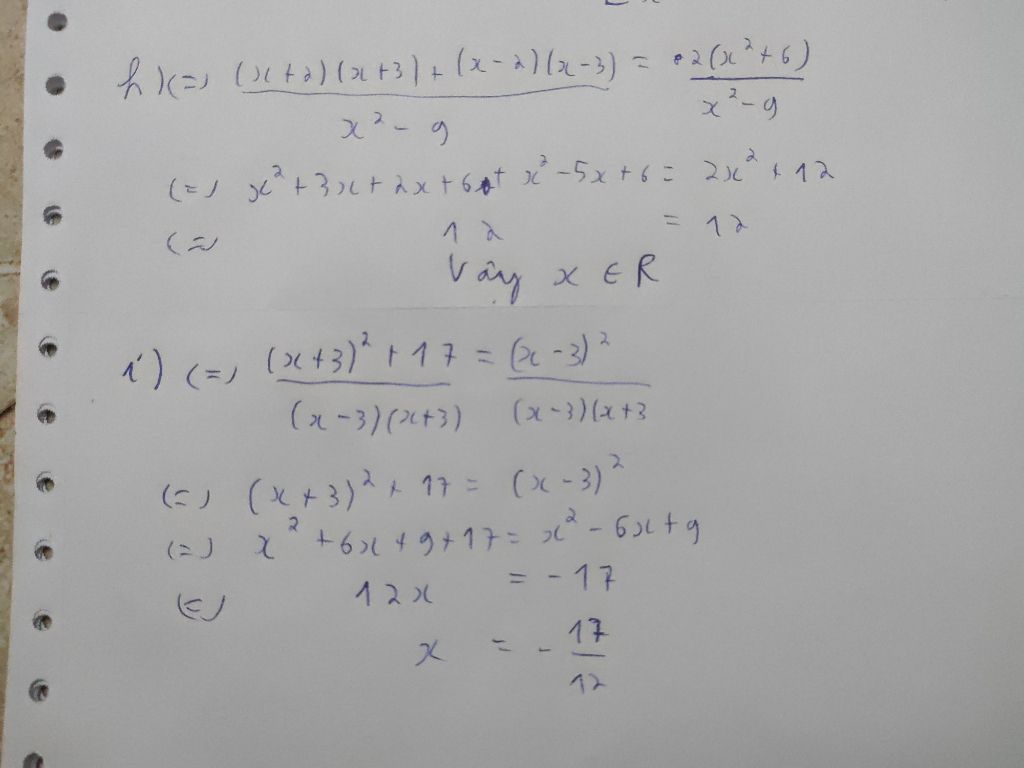 h) <=> (x+2)(x+3) + (x-2)(x-3) / x² - 9 = 2(x²+6) / x²-9
<=> x² + 3x + 2x + 6 + x² - 5x + 6 = 2x² + 12
<=> 12 = 12
Vậy x ∈ R
i) <=> (x+3)² + 17 / (x-3)(x+3) = (x-3)² / (x-3)(x+3
<=> (x+3)² + 17 = (x-3)²
<=> x² + 6x + 9 + 17 = x² - 6x + 9
<=> 12x = -17
x = - 17/12